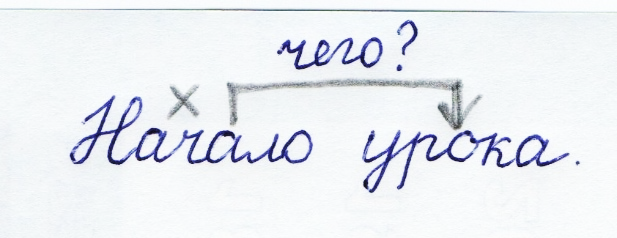 чего?
Начало урока.